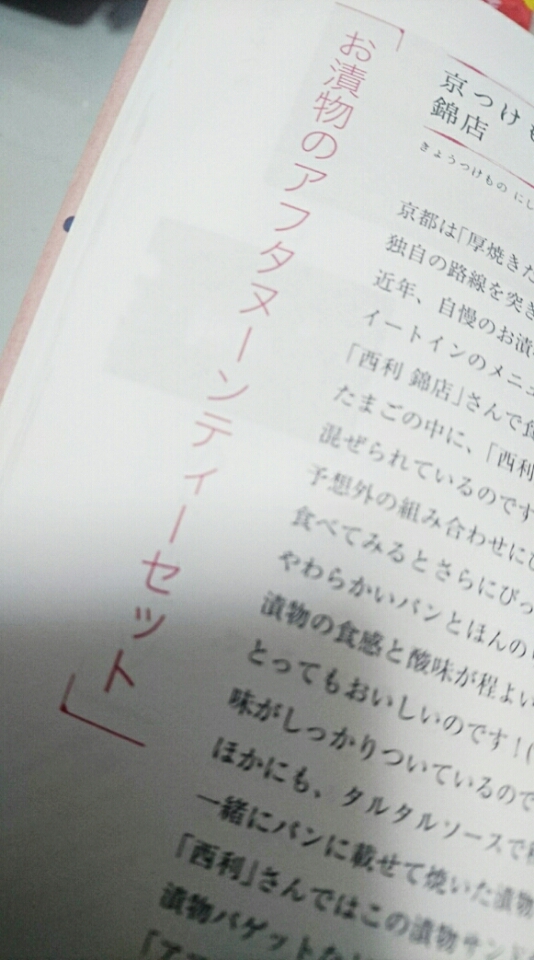 「お漬物のアフタヌーンティーセット」
京つけも
錦店
きょうつけもの にし
京都は「厚焼きた
独自の路線を突き
近年、自慢のお漬
イートインのメニュ
「西利 錦店」さんで食
たまごの中に、「西利
混ぜられているのです
予想外の組み合わせにび
食べてみるとさらにびっ
やわらかいパンとほんの
漬物の食感と酸味が程よい
とってもおいしいのです!(
味がしっかりついているので
ほかにも、タルタルソースで
一緒にパンに載せて焼いた漬物
「西利」さんではこの漬物サンド
漬物バゲットな